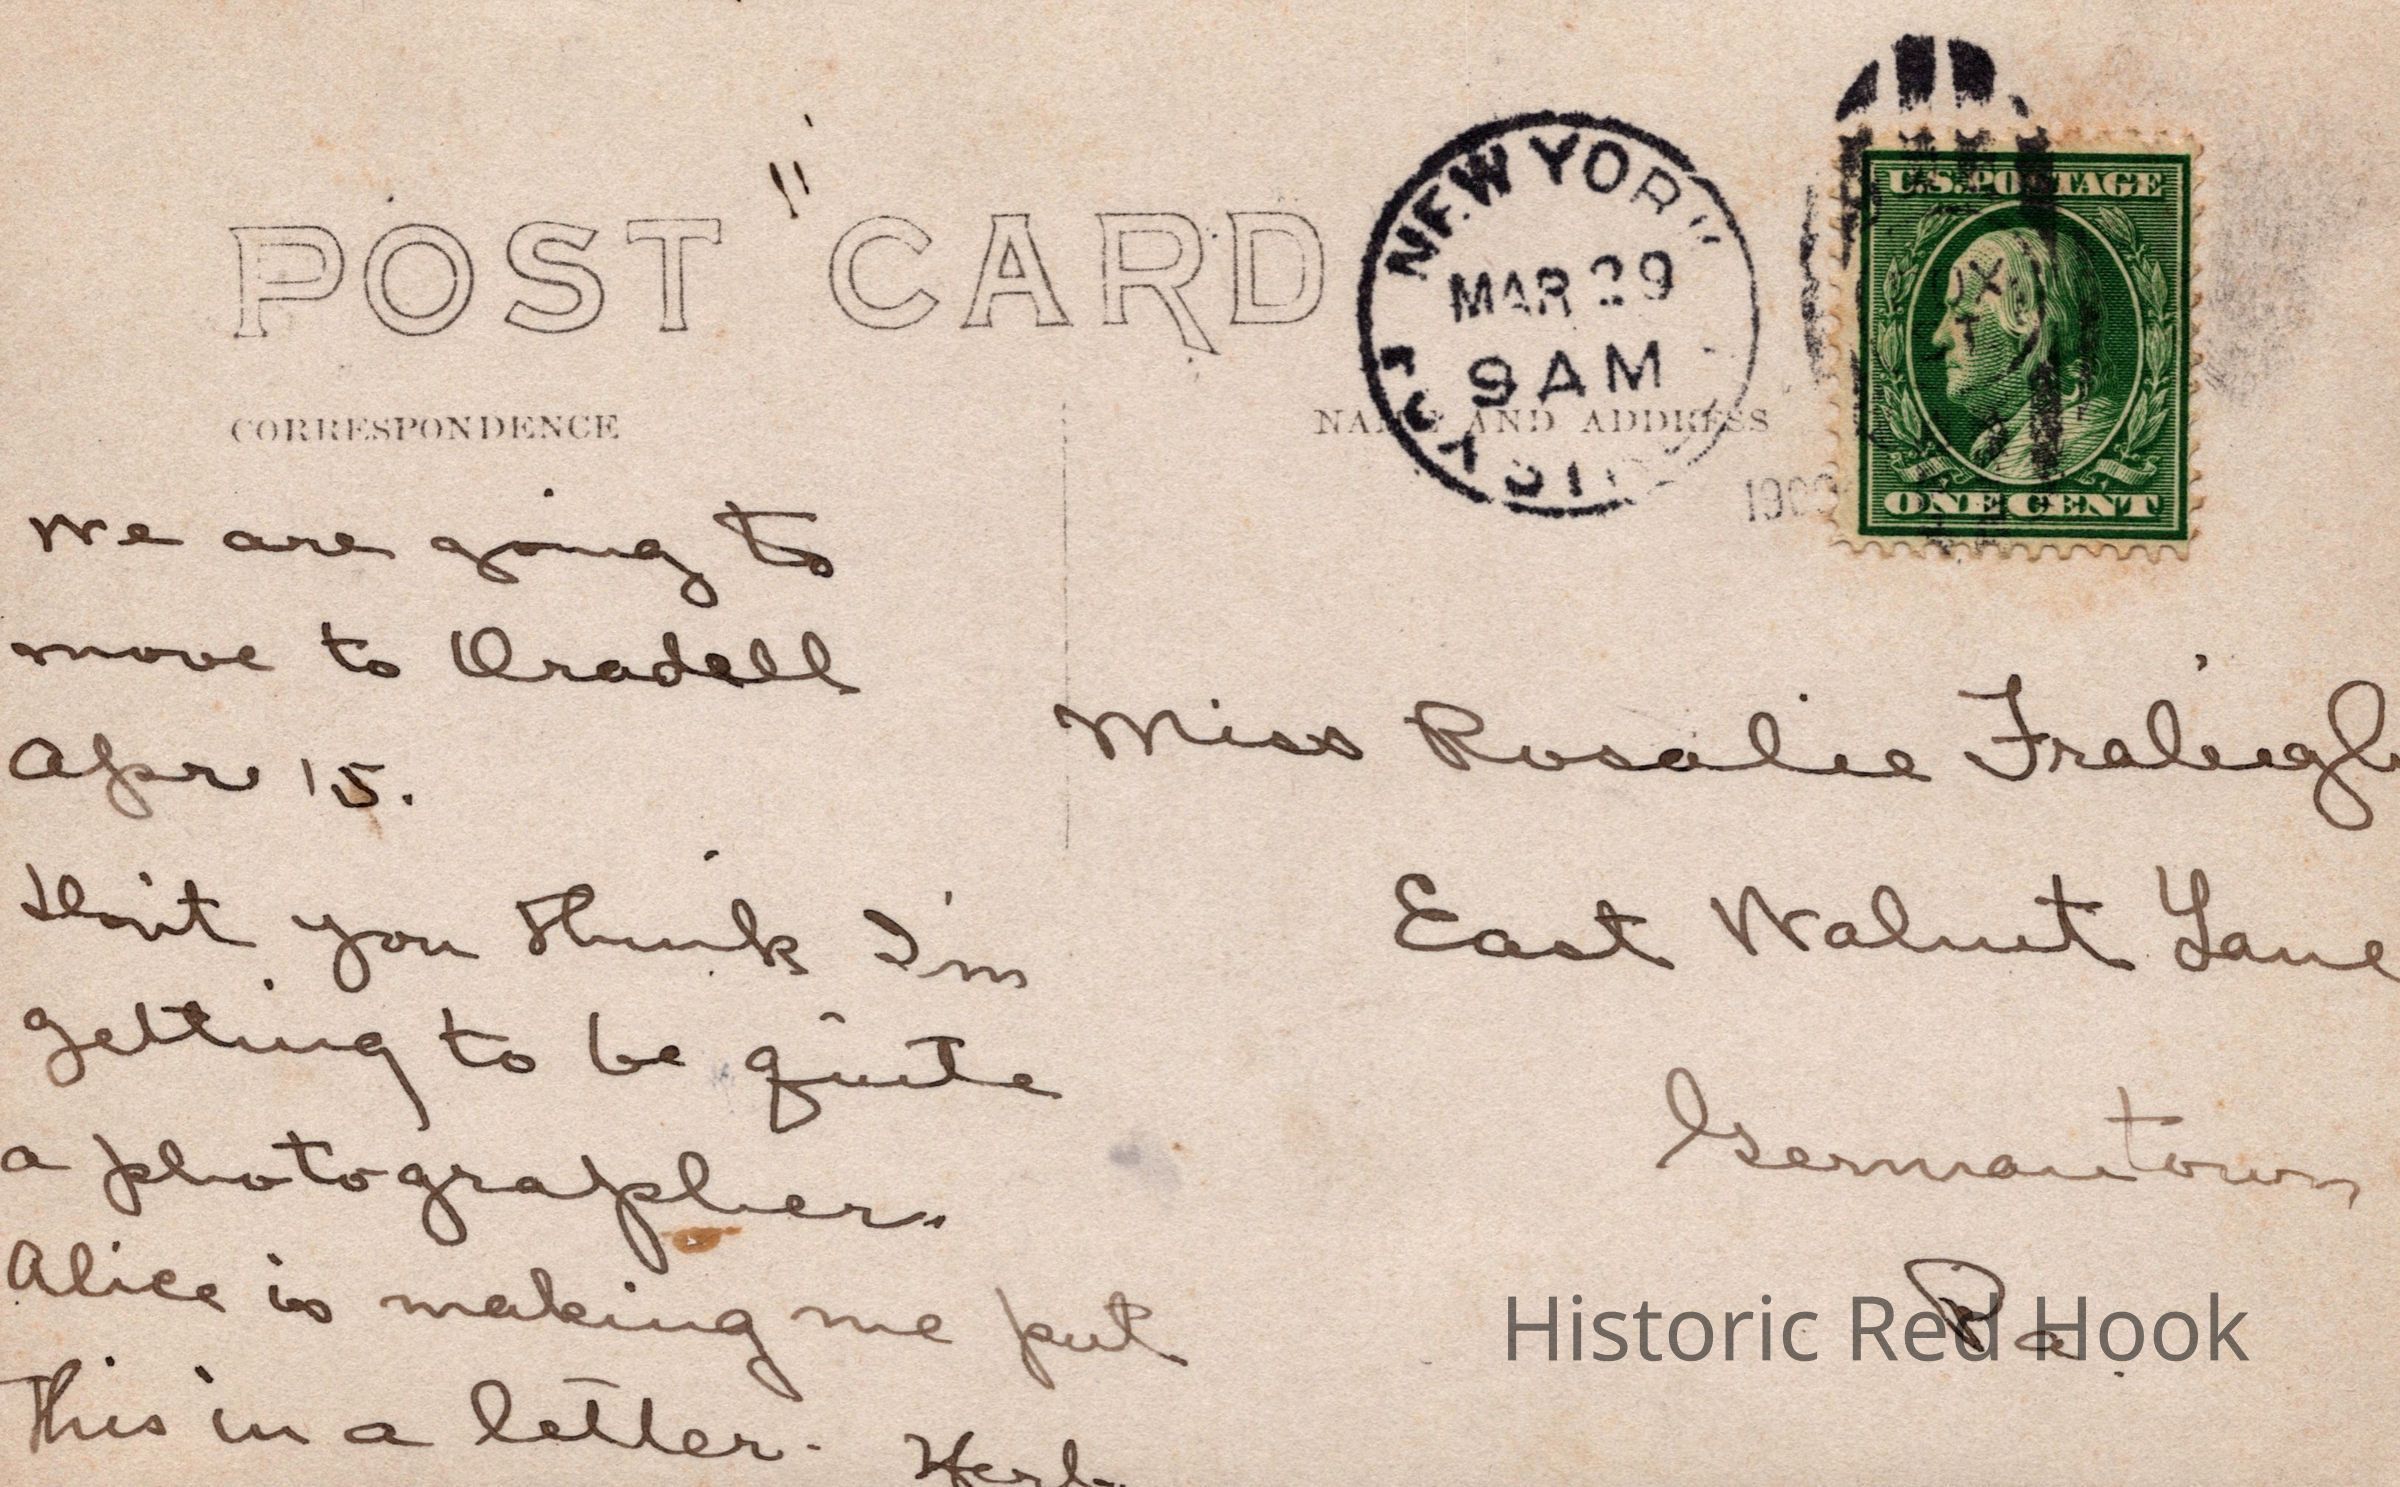 POST CARD
CORRESPONDENCE
NAME AND ADDRESS
NEW YORK
MAR 29
9 AM
U.S. POSTAGE
ONE CENT
We are going to
move to Oradell
Apr 15.
Don't you think I'm
getting to be quite
a photographer.
Alice is making me put
this in a letter. Herb.
Miss Rosalie Fraleigh
East Walnut Lane
Germantown
Pa.
Historic Red Hook